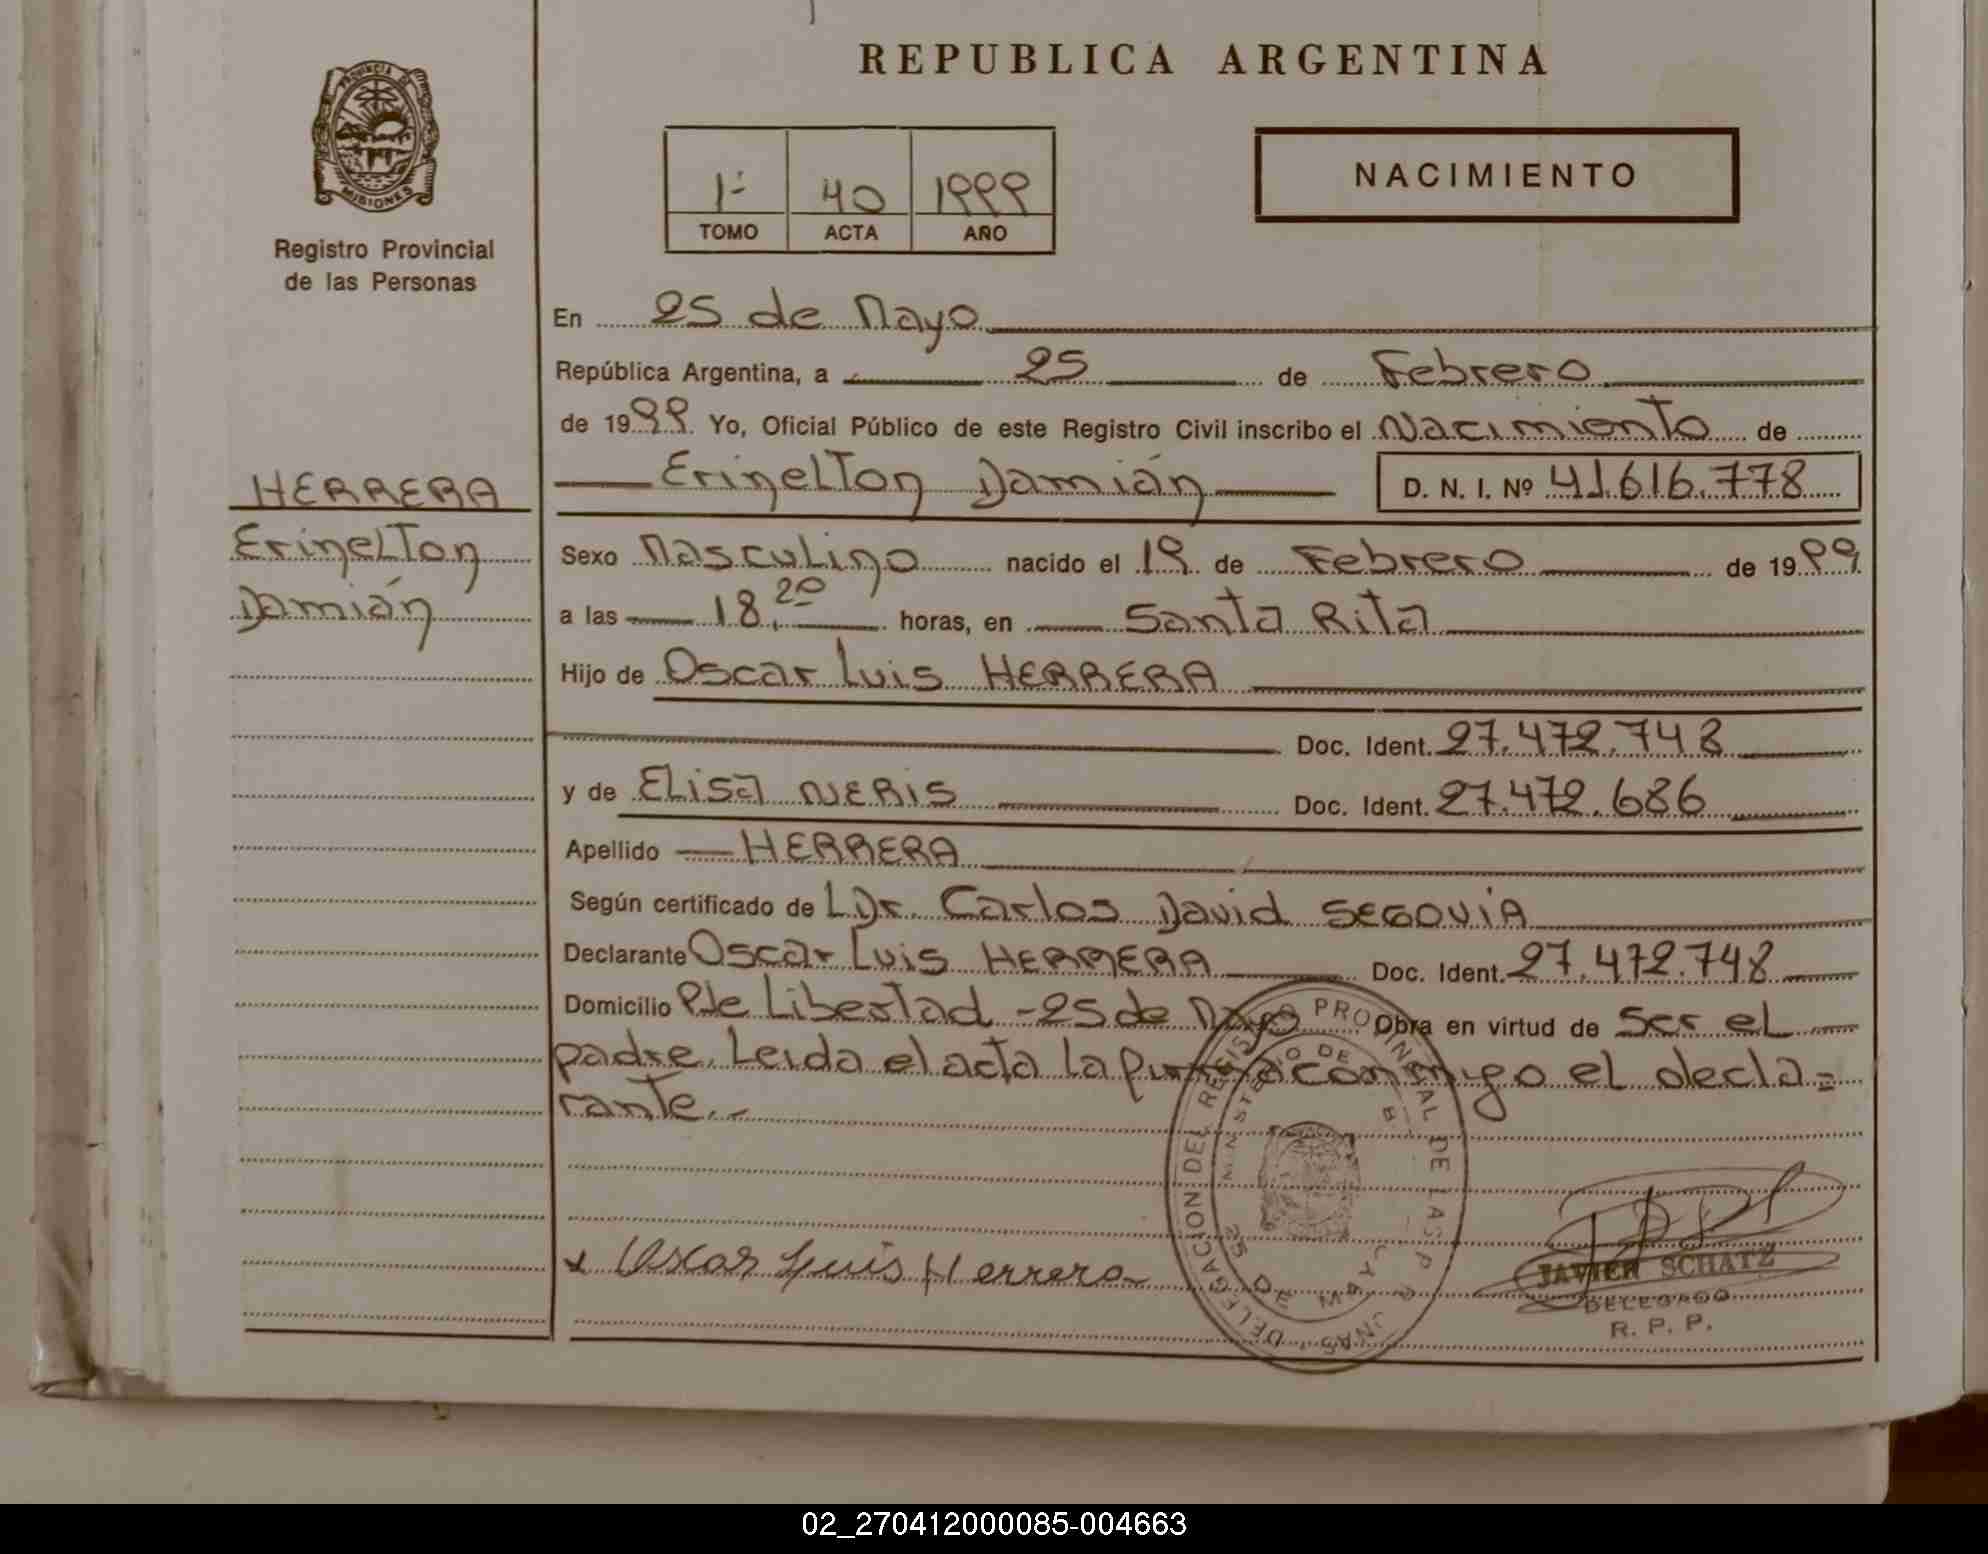 REPUBLICA ARGENTINA
PROVINCIA DE
MISIONES
Registro Provincial
de las Personas
1-
40
1999
TOMO
ACTA
AÑO
NACIMIENTO
En 25 de Mayo
República Argentina, a 25 de Febrero
de 1999 Yo, Oficial Público de este Registro Civil inscribo el Nacimiento de
Erinelton Damián D. N. I. Nº 41.616.778
HERRERA
Erinelton
Damián
Sexo Masculino nacido el 19 de Febrero de 1999
a las 18,20 horas, en Santa Rita
Hijo de Oscar Luis HERRERA
Doc. Ident. 27.472.748
y de Elisa NERIS Doc. Ident. 27.472.686
Apellido HERRERA
Según certificado de LDr. Carlos David SEGOVIA
Declarante Oscar Luis HERRERA Doc. Ident. 27.472.748
Domicilio Pje Libertad - 25 de Mayo Obra en virtud de ser el
padre. Leida el acta la firma conmigo el decla=
rante.-
DELEGACION DEL REGISTRO PROVINCIAL DE LAS PERSONAS
MINISTERIO DE
25 DE MAYO
x Oscar Luis Herrera
JAVIER SCHATZ
DELEGADO
R. P. P.
02_270412000085-004663